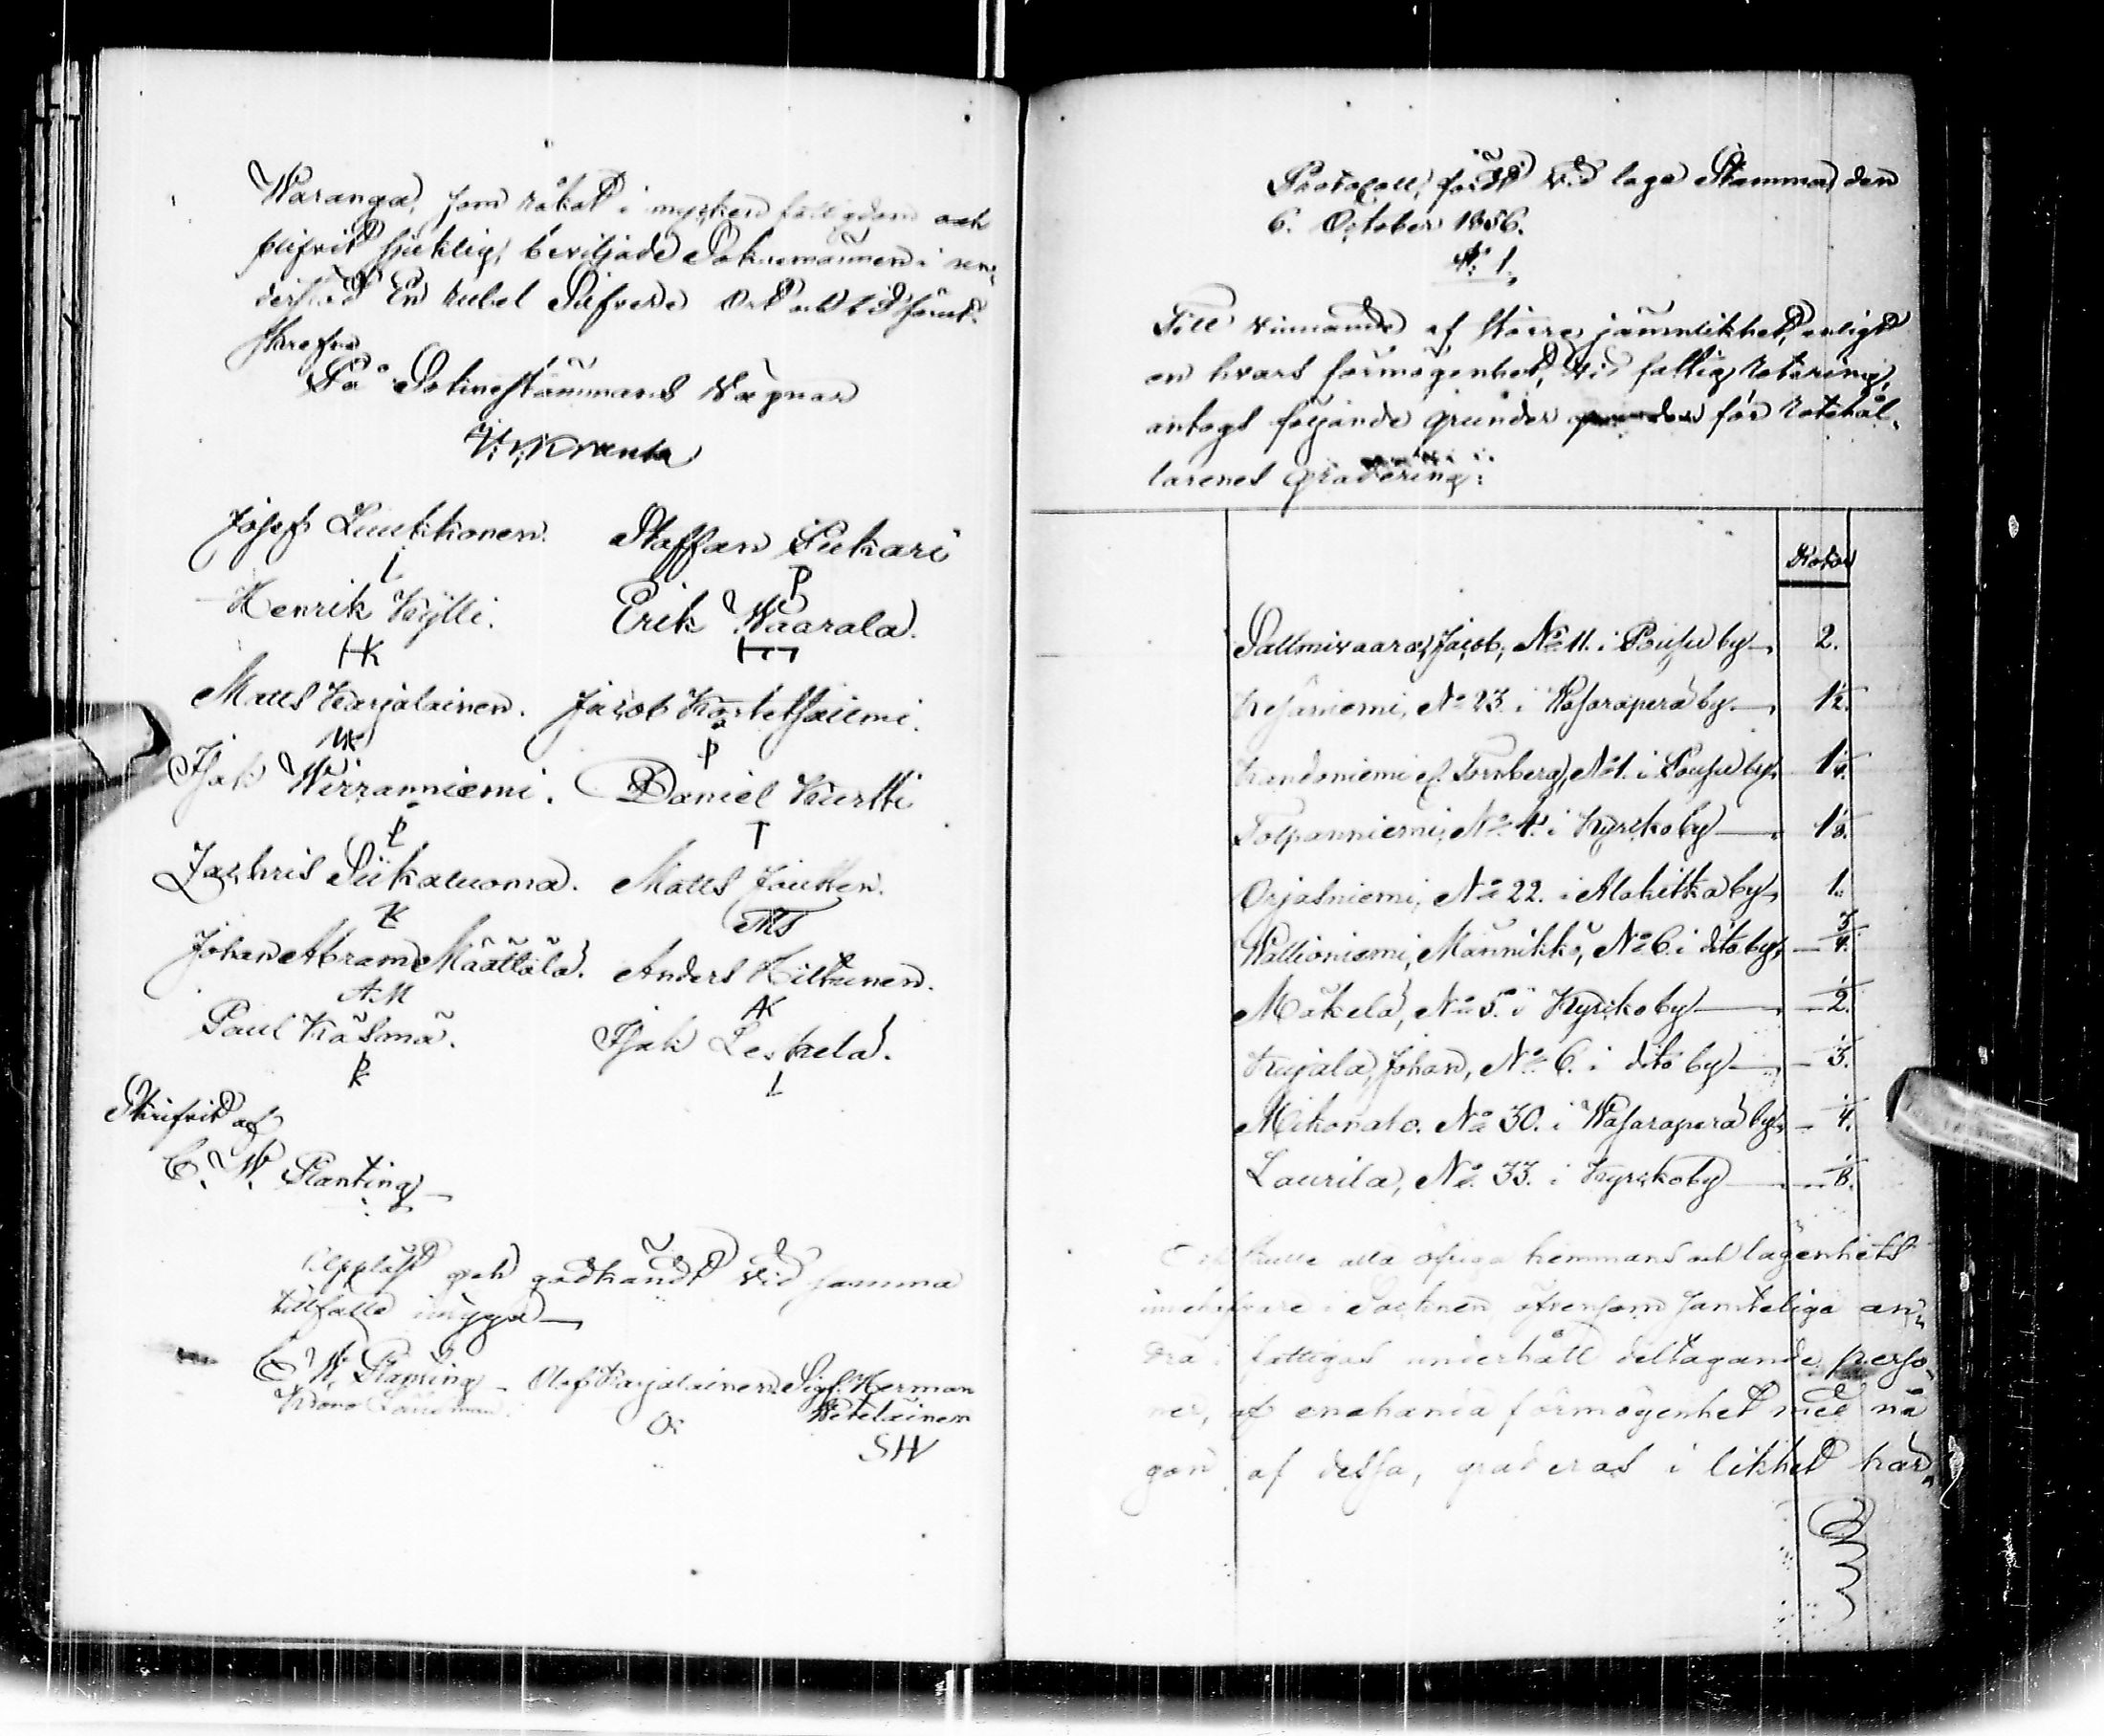 Waranga, som råkat i mycken fattigdom och
blifvit sjuklig, beviljade Soknemännen i un-
derstöd En rubel Silfver. Ort och tid förut-
skrefne
På Soknestämmans Wägnar
Josef Luukkonen. Staffan Sukari
L P
Henrik Kylli. Erik Waarala.
HK
Matts Karjalainen. Jacob Kortetsaiemi.
MK P
Isak Wirranniemi. Daniel Kurtti
P T
Zachris Siikaluoma. Matts Joutten.
K MS
Johan Abram Määttälä. Anders Hiltunen.
AM AK
Paul Käsmä. Isak Leskelä.
PK L
Skrifvit af
C. W. Planting
Uppläst och godkändt vid samma
tillfälle intyga
C. W. Planting Olof Karjalainen Sigf. Herman
Krono Länsman. Weteläinen
SHW
Protocoll, fördt vid laga Stämma den
6. October 1856.
§. 1.
Till vinnande af större jämnlikhet, enligt
en hvars förmögenhet, vid fattig rotering,
antogs följande grunder för rotehål-
larenes gradering:
Rotar
Saltmivaara, Jacob, No 11. i Pousu by 2.
Kesäniemi, No 23. i Wasaraperä by 1 1/2.
Kandoniemi el. Tornberg, No 1. i Pousu by 1 1/4.
Tolpanniemi, No 4. i Kyrkoby 1 1/8.
Orjasniemi, No 22. i Alakitka by 1.
Wattioniemi, Männikkö, No 6. i dito by 3/4.
Mäkelä, No 5. i Kyrkoby 1/2.
Kujala, Johan, No 6. i dito by 1/3.
Mikonalo. No 30. i Wasaraperä by 1/4.
Laurila, No 33. i Kyrkoby 1/8.
Och skulle alla öfriga hemmans och lägenhets
innehafvare i Socknen, äfvensom samteliga an-
dra i fattigas underhåll deltagande perso-
ner, af enahanda förmögenhet med nå
gon af dessa, graderas i likhet här-